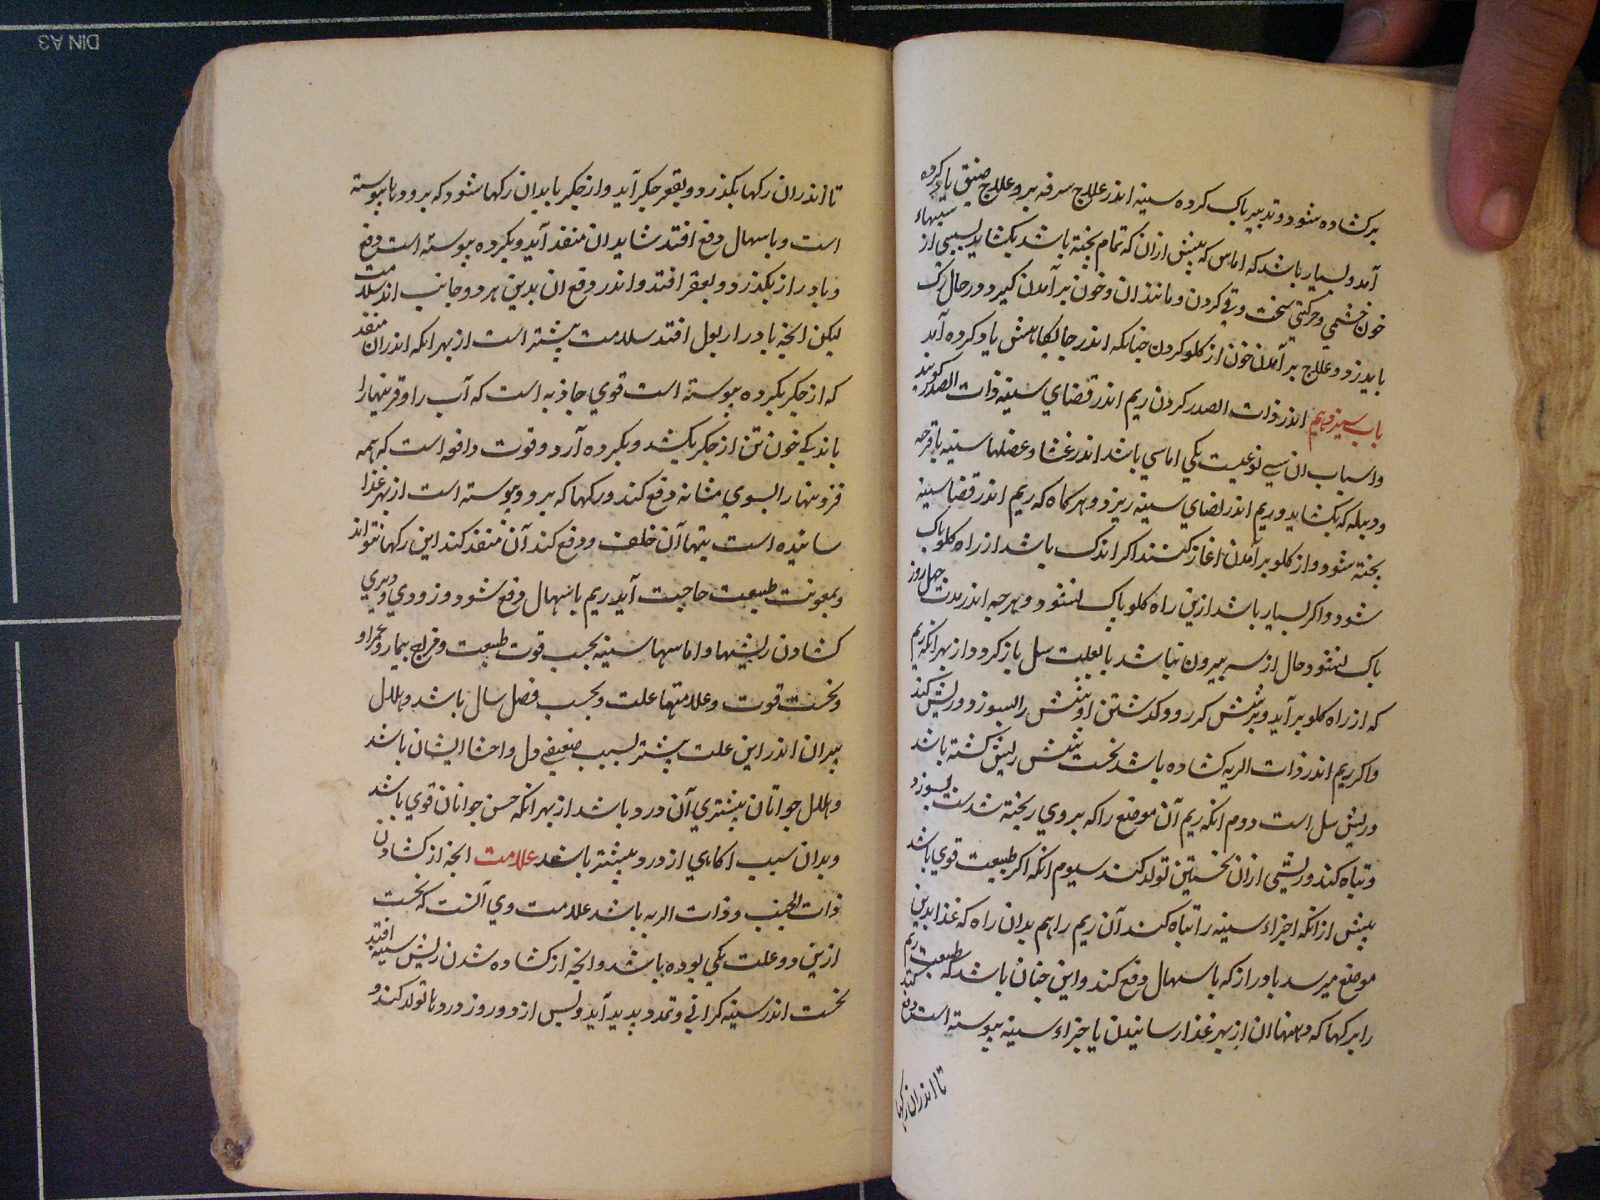 برکشاده شود و تدبیر پاک کرده سینه اندر علاج سرفه بر و علاج ضیق یاد کرده
آمد و بسیار باشد که اماس که پیش ازان که تمام پخته باشد بکشاید بسببی از سببهاء
خون خشمی و حرکتی سخت و قی کردن و مانند ان و خون بر آمدن کیرد و در حال رک
باید زد و علاج بر آمدن خون از کلو کردن چنانکه اندر جایکاهش یاد کرده آید
باب سیزدهم اندر ذات الصدر کردن ریم اندر قضای سینه ذات الصدر کویند
و اسباب ان سه نوعیست یکی اماسی باشد اندر غشا و عضلها سینه یا قرحه
و دبیله که بکشاید و ریم اندر فضای سینه ریزد و هر کاه که ریم اندر فضا سینه
پخته شود و از کلو بر آمدن اغاز کند اکر اندک باشد از راه کلو پاک
شود و اکر بسیار باشد ازین راه کلو پاک نشود و هر چه اندر مدت چهل روز
پاک نشود حال از سه بیرون نباشد یا بعلت سل باز کردد از بهر انکه ریم
که از راه کلو بر آید و بر شش کذرد و کذشتن او شش را بسوزد و ریش کند
و اکر ریم اندر ذات الریه کشاده باشد نخست شش ریش کشته باشد
و ریش سل است دوم انکه ریم آن موضع را که بر وی ریخته شدست بسوزد
و تباه کند و ریشی ازان نخستین تولد کند سیوم انکه اکر طبیعت قوی باشد
پیش از انکه اجزاء سینه را تباه کند آن ریم را هم بدان راه که غذا بدین
موضع میرسد باد راز که باسهال دفع کند و این چنان باشد که طبیعت ریم
را بر کها که دهنها ان از بهر غذا رسانیدن باجزاء سینه پیوسته است دفع کند
تا اندران رکها
تا اندران رکها بکذرد و بقعر جکر آید و از جکر یا بدان رکها شود که برودها پیوسته
است و باسهال دفع افتد شاید ان منفذ آید و بکرده پیوسته است دفع
و باد راز بکذرد و بعقر افتد و اندر دفع ان بدین هر دو جانب اند سلامت
لیکن انچه باد رار بول افتد سلامت بیشتر است از بهر انکه اندران منفذ
که از جکر بکرده پیوسته است قوی جاذبه است که آب را و قزینها را
با ندکی خون تن از جکر بکشد و بکرده آرد و قوت دافعه است که همه
فزونیها را بسوی مثانه دفع کند و رکها که برود پیوسته است از بهر غذا
ساینده است تنها آن خلف و دفع کند آن منفذ کند این رکها نتواند
و بمعونت طبیعت حاجت آید ریم باسهال دفع شود و زودی و دیری
کشادن ریشها و اماسها سینه بحسب قوت طبیعت و مزاج بیمار و عمر او
و نخست قوت و علامتها علت و بحسب فصل سال باشد و هلاک
پیران اندر این علت بیشتر بسبب ضعیفی دل و احشا ایشان باشد
و هلاک جوانان بیشتری آن درد باشد از بهر انکه حس جوانان قوی باشد
و بدان سبب اکاهی از درد بیشتر باشد علامت انچه از کشادن
ذات الجنب و ذات الریه باشد علامت وی آنست که نخست
ازین دو علت یکی بوده باشد و انچه از کشاده شدن ریش سینه افتد
نخست اندر سینه کرانی و تمدد پدید آید و پس از دو روز دردها تولد کند و